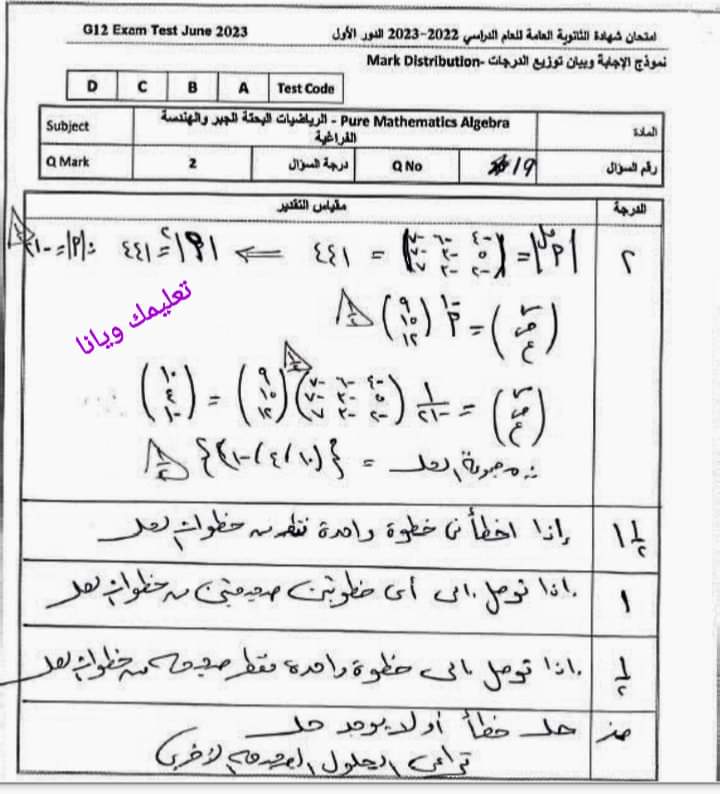 G12 Exam Test June 2023
امتحان شهادة الثانوية العامة للعام الدراسي 2022-2023 الدور الأول
نموذج الإجابة وبيان توزيع الدرجات -Mark Distribution
D C B A Test Code
Subject
الرياضيات البحتة الجبر والهندسة - Pure Mathematics Algebra
الفراغية
المادة
Q Mark 2 درجة السؤال Q No 19 رقم السؤال
مقياس التقدير
الدرجة
٢
= ٤٤١ ⇐ |أ|² = ٤٤١ ∴ |أ| = -٢١
تعليمك ويانا
(س ص ع) = أ⁻¹ (٩ ١٥ ١٢)
(س ص ع) = ١/-٢١ (-٤ -٦ -٧ ٥ -٣ -٧ -٢ -٣ ٧) (٩ ١٥ ١٢) = (١٠ ٤ -١)
∴ مجموعة الحل = {(١٠، ٤، -١)}
١ ١/٢ إذا اخطأ في خطوة واحدة فقط من خطوات الحل
١ إذا توصل إلى أى خطوتين صحيحتين من خطوات الحل
١/٢ إذا توصل إلى خطوة واحدة فقط صحيحة من خطوات الحل
صفر حل خطأ أو لا يوجد حل
تراعى الحلول الصحيحة الأخرى